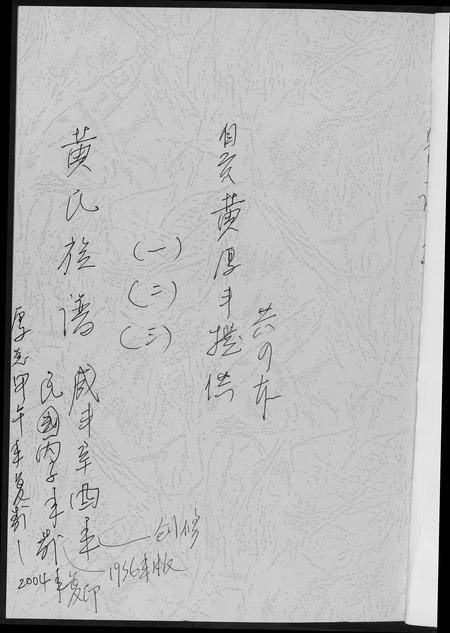 自贡黄厚丰提供
共9本
(一)
(二)
(三)
黄氏族谱 咸丰辛酉年
创修
民國丙子年新
1936年版
厚志甲午年复新
2004年复印